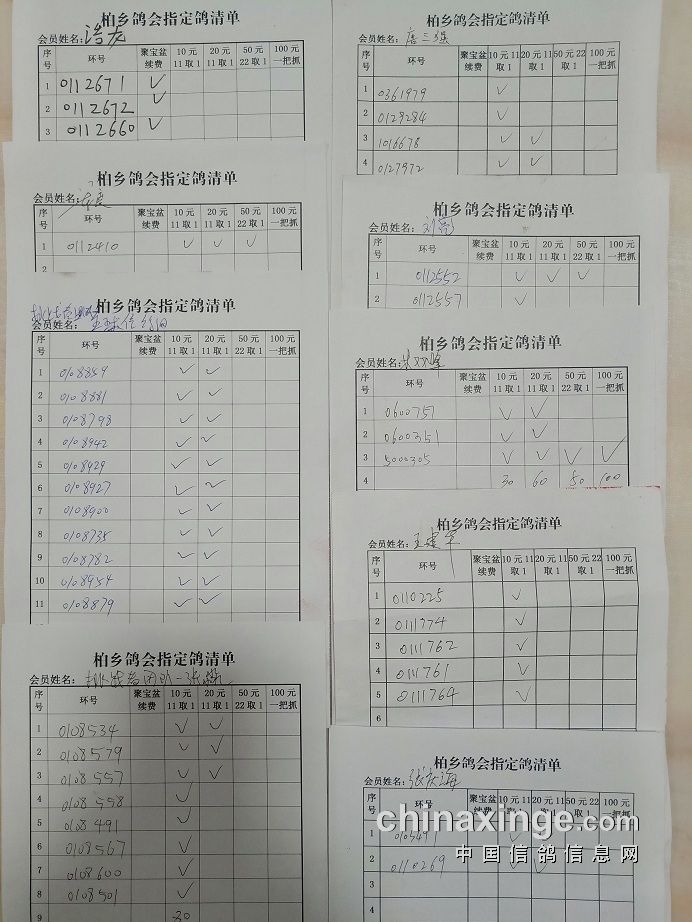 柏乡鸽会指定鸽清单
会员姓名: 浩龙
序号 环号 聚宝盆续费 10元11取1 20元11取1 50元22取1 100元一把抓
1 0112671 ✓
2 0112672 ✓
3 0112660 ✓
柏乡鸽会指定鸽清单
会员姓名:
序号 环号 聚宝盆续费 10元11取1 20元11取1 50元22取1 100元一把抓
1 0112410 ✓ ✓ ✓
2
柏乡鸽会指定鸽清单
会员姓名:
序号 环号 聚宝盆续费 10元11取1 20元11取1 50元22取1 100元一把抓
1 0108859 ✓ ✓
2 0108881 ✓ ✓
3 0108798 ✓ ✓
4 0108942 ✓ ✓
5 0108929 ✓ ✓
6 0108927 ✓ ✓
7 0108900 ✓ ✓
8 0108735 ✓ ✓
9 0108782 ✓ ✓
10 0108954 ✓ ✓
11 0108879 ✓ ✓
柏乡鸽会指定鸽清单
会员姓名:
序号 环号 聚宝盆续费 10元11取1 20元11取1 50元22取1 100元一把抓
1 0108534 ✓ ✓
2 0108579 ✓ ✓
3 0108557 ✓ ✓
4 0108558 ✓
5 0108491 ✓
6 0108567 ✓
7 0108600 ✓
8 0108501 ✓
9
柏乡鸽会指定鸽清单
会员姓名: 唐三强
序号 环号 聚宝盆续费 10元11取1 20元11取1 50元22取1 100元一把抓
1 0361979 ✓
2 0129284 ✓
3 1016678 ✓ ✓
4 0127972 ✓ ✓
柏乡鸽会指定鸽清单
会员姓名: 刘亮
序号 环号 聚宝盆续费 10元11取1 20元11取1 50元22取1 100元一把抓
1 0112552 ✓ ✓ ✓
2 0112557 ✓
柏乡鸽会指定鸽清单
会员姓名:
序号 环号 聚宝盆续费 10元11取1 20元11取1 50元22取1 100元一把抓
1 0600757 ✓ ✓
2 0600351 ✓ ✓
3 5000305 ✓ ✓ ✓ ✓
4 30 60 50 100
柏乡鸽会指定鸽清单
会员姓名: 王建军
序号 环号 聚宝盆续费 10元11取1 20元11取1 50元22取1 100元一把抓
1 0110225 ✓
2 0111774 ✓
3 0111762 ✓
4 0111761 ✓
5 0111764 ✓
6
柏乡鸽会指定鸽清单
会员姓名: 张庆海
序号 环号 聚宝盆续费 10元11取1 20元11取1 50元22取1 100元一把抓
1
2 0110269 ✓ ✓
3
4
chinaxinge.com
中国信鸽信息网